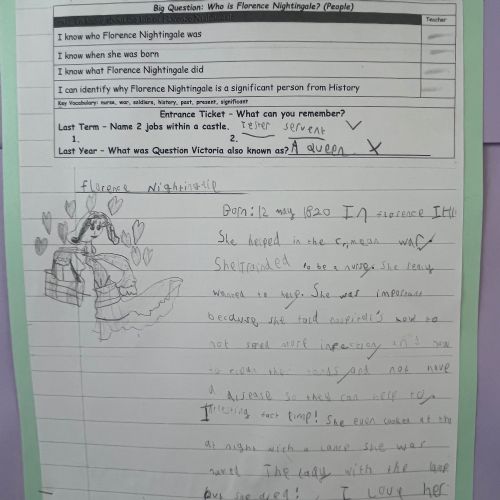 Big Question: Who is Florence Nightingale? (People)
Teacher
I know who Florence Nightingale was
I know when she was born
I know what Florence Nightingale did
I can identify why Florence Nightingale is a significant person from History
Key Vocabulary: nurse, war, soldiers, history, past, present, significant
Entrance Ticket - What can you remember?
Last Term - Name 2 jobs within a castle. servent
1. 2.
Last Year - What was Question Victoria also known as? A queen
florence Nightingale
Born: 12 may 1820 In florence
She helped in the crimean war
She to be a nurse. She realy
wanted to help. She was
because she told how to
not more infection and how
to and not have
a disease so they can help to
fact time! She even at the
at night with a lamp she was
The lady with the
but she died! I Love her